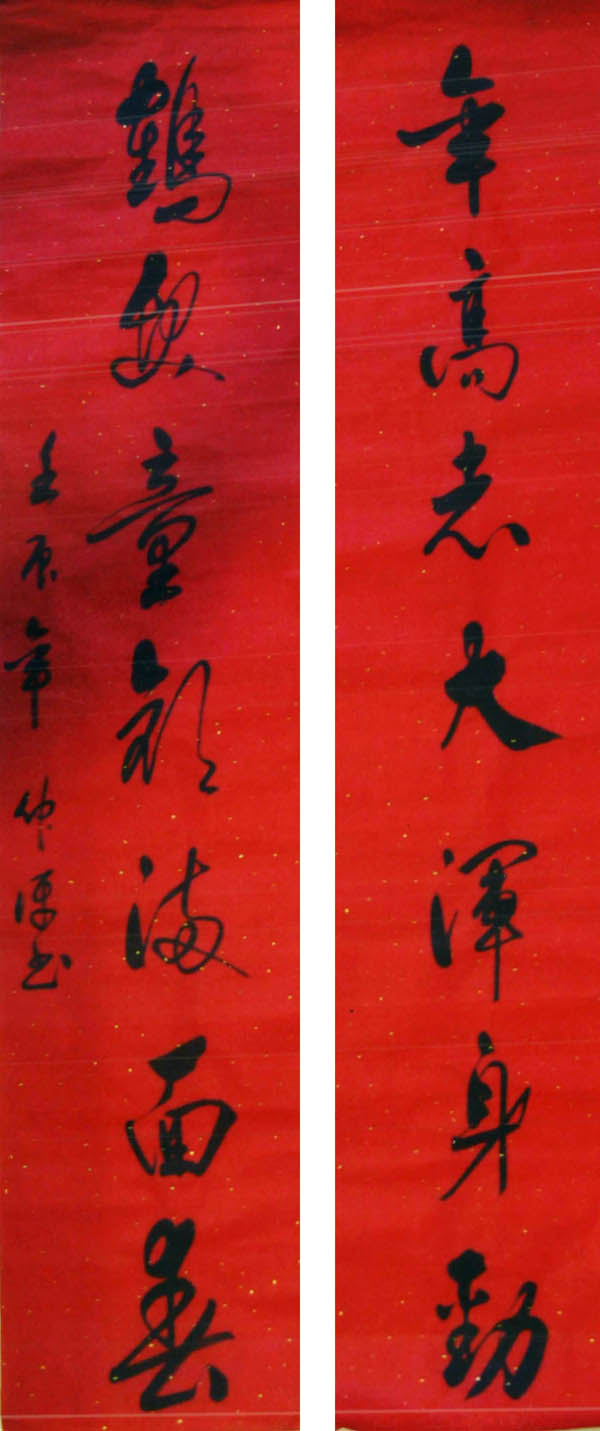 年高志大渾身勁
鶴髮童顏滿面春
壬辰年 仲書